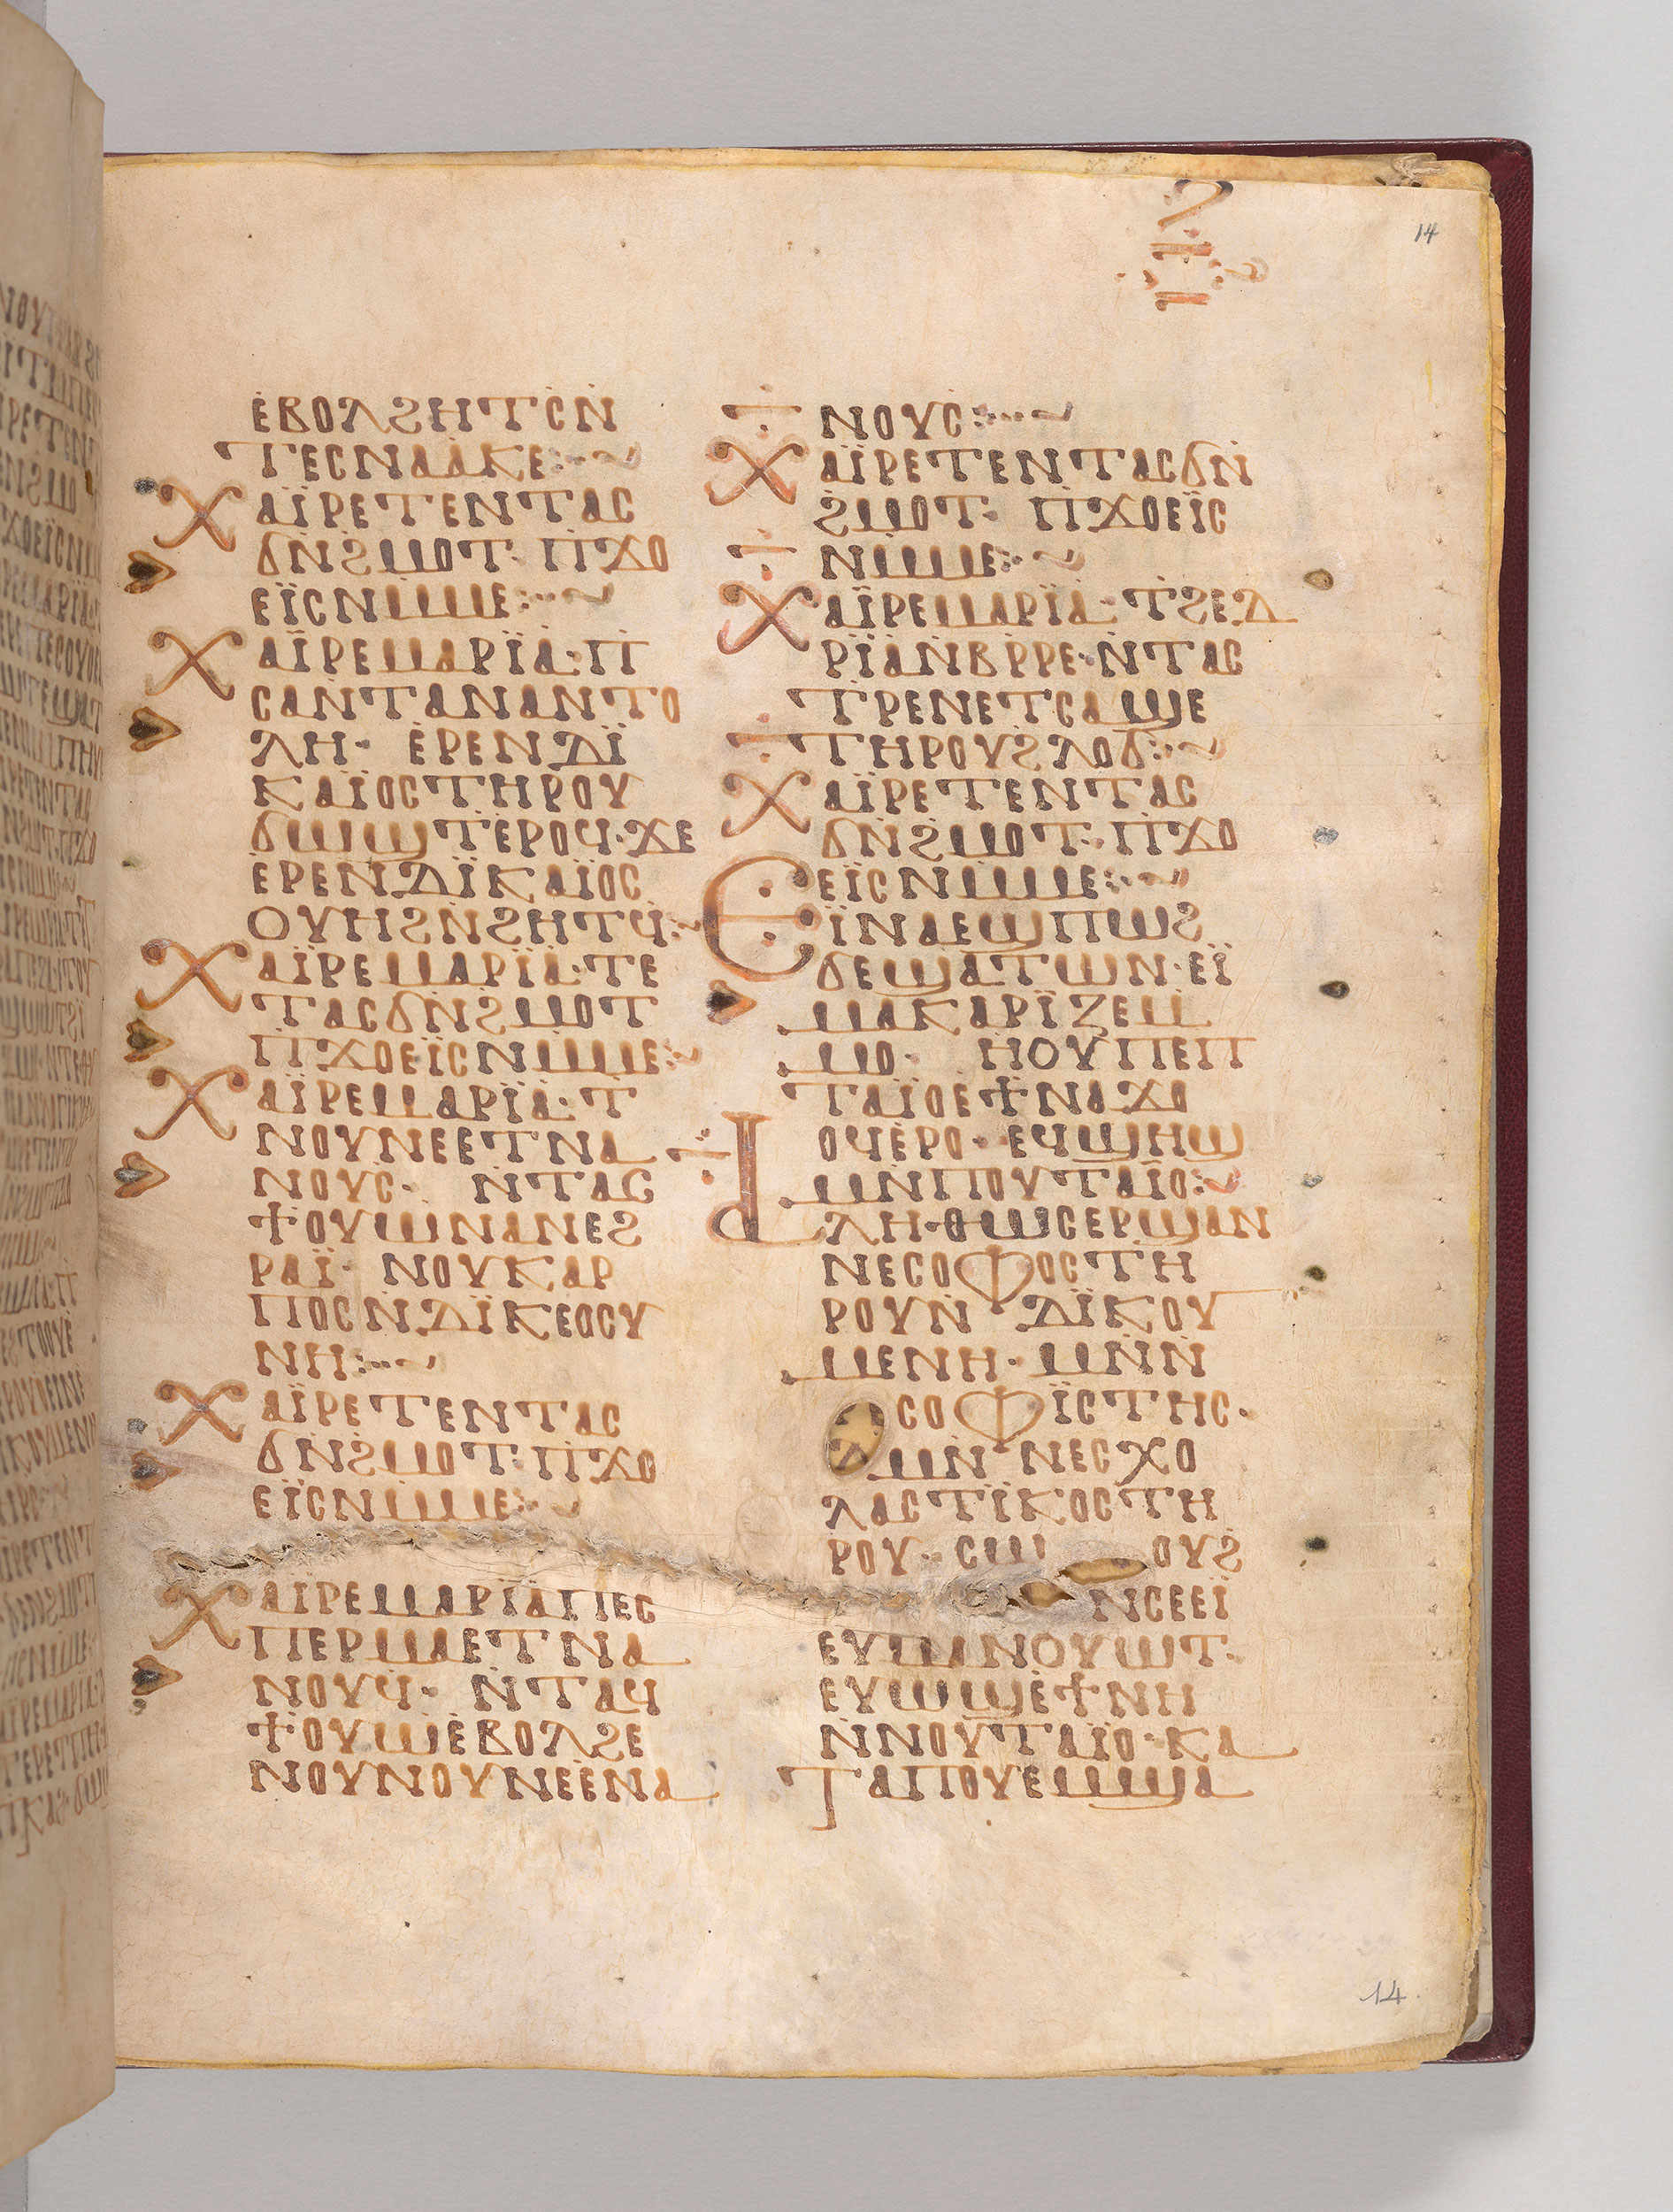 14
ⲉ̇ⲃⲟⲗϩⲏⲧⲥ̇ⲛ̇
ⲧⲉⲥⲛⲁⲁⲕⲉ:
ⲭⲁⲓ̈ⲣⲉⲧⲉⲛⲧⲁⲥ
ϭⲛ̇ϩⲙⲟⲧ· ⲡ̇ϫⲟ
ⲉⲓ̈ⲥⲛⲙ̇ⲙⲉ:
ⲭⲁⲓ̈ⲣⲉⲙⲁⲣⲓ̈ⲁ· ⲡ̇
ⲥⲁⲛⲧⲁⲛⲁⲛⲧⲟ
ⲗⲏ· ⲉ̇ⲣⲉⲛⲇⲓ̈
ⲕⲁⲓ̈ⲟⲥⲧⲏⲣⲟⲩ
ϭⲱϣⲧⲉ̇ⲣⲟϥ·ϫⲉ
ⲉ̇ⲣⲉⲛⲇⲓ̈ⲕⲁⲓ̈ⲟⲥ
ⲟⲩⲏϩⲛ̇ϩⲏⲧϥ̇:
ⲭⲁⲓ̈ⲣⲉⲙⲁⲣⲓ̈ⲁ· ⲧⲉ
ⲧⲁⲥϭⲛ̇ϩⲙⲟⲧ
ⲡ̇ϫⲟⲉⲓ̈ⲥⲛⲙ̇ⲙⲉ:
ⲭⲁⲓ̈ⲣⲉⲙⲁⲣⲓ̈ⲁ· ⲧ
ⲛⲟⲩⲛⲉⲉⲧⲛⲁ
ⲛⲟⲩⲥ· ⲛ̇ⲧⲁⲥ
ϯⲟⲩⲱⲛⲁⲛⲉϩ
ⲣⲁⲓ̈· ⲛⲟⲩⲕⲁⲣ
ⲡⲟⲥⲛ̇ⲇⲓ̈ⲕⲉⲟⲥⲩ
ⲛⲏ:
ⲭⲁⲓ̈ⲣⲉⲧⲉⲛⲧⲁⲥ
ϭⲛ̇ϩⲙⲟⲧ· ⲡ̇ϫⲟ
ⲉⲓ̈ⲥⲛⲙ̇ⲙⲉ:
ⲭⲁⲓ̈ⲣⲉⲙⲁⲣⲓ̈ⲁⲡⲉⲥ
ⲡⲉⲣⲙⲁⲉⲧⲛⲁ
ⲛⲟⲩϥ· ⲛ̇ⲧⲁϥ
ϯⲟⲩⲱⲉ̇ⲃⲟⲗϩⲉ
ⲛⲟⲩⲛⲟⲩⲛⲉⲉ̇ⲛⲁ
ⲛⲟⲩⲥ:
ⲭⲁⲓ̈ⲣⲉⲧⲉⲛⲧⲁⲥϭⲛ̇
ϩⲙⲟⲧ· ⲡ̇ϫⲟⲉⲓ̈ⲥ
ⲛⲙ̇ⲙⲉ:
ⲭⲁⲓ̈ⲣⲉⲙⲁⲣⲓ̈ⲁ· ⲧϩⲉⲇ
ⲣⲓ̈ⲁⲛⲃⲣ̇ⲣⲉ· ⲛ̇ⲧⲁⲥ
ⲧⲣⲉⲛⲉⲧⲥⲁϣⲉ
ⲧⲏⲣⲟⲩϩⲗⲟϭ:
ⲭⲁⲓ̈ⲣⲉⲧⲉⲛⲧⲁⲥ
ϭⲛ̇ϩⲙⲟⲧ· ⲡ̇ϫⲟ
ⲉⲓ̈ⲥⲛⲙ̇ⲙⲉ:
ⲉⲓ̈ⲛⲁⲉϣⲡⲱϩ
ϭⲉϣⲁⲧⲱⲛ· ⲉⲓ̈
ⲙⲁⲕⲁⲣⲓ̈ⲍⲉⲙ̇
ⲙⲟ· ⲏⲟⲩⲡⲉⲡ
ⲧⲁⲓ̈ⲟⲉϯⲛⲁϫⲟ
ⲟϥⲉ̇ⲣⲟ· ⲉϥϣⲏϣ
ⲙⲛ̇ⲡⲟⲩⲧⲁⲓ̈ⲟ:
ⲁⲗⲏ·ⲑⲱⲥⲉⲣϣⲁⲛ
ⲛⲉⲥⲟⲫⲟⲥⲧⲏ
ⲣⲟⲩⲛ̇ ⲇⲓ̈ⲕⲟⲩ
ⲙⲉⲛⲏ· ⲙⲛ̇ⲛ̇
ⲥⲟⲫⲓ̈ⲥⲧⲏⲥ·
ⲙⲛ̇ ⲛⲉⲥⲭⲟ
ⲗⲁⲥⲧⲓ̈ⲕⲟⲥⲧⲏ
ⲣⲟⲩ· ⲥⲱ ⲟⲩϩ
ⲛ̇ⲥⲉⲉⲓ̈
ⲉⲩⲙⲁⲛⲟⲩⲱⲧ·
ⲉⲩⲱϣⲉ̇ϯⲛⲏ
ⲛ̇ⲛⲟⲩⲧⲁⲓ̈ⲟ· ⲕⲁ
ⲧⲁⲡⲟⲩⲉⲙⲙϣⲁ
14